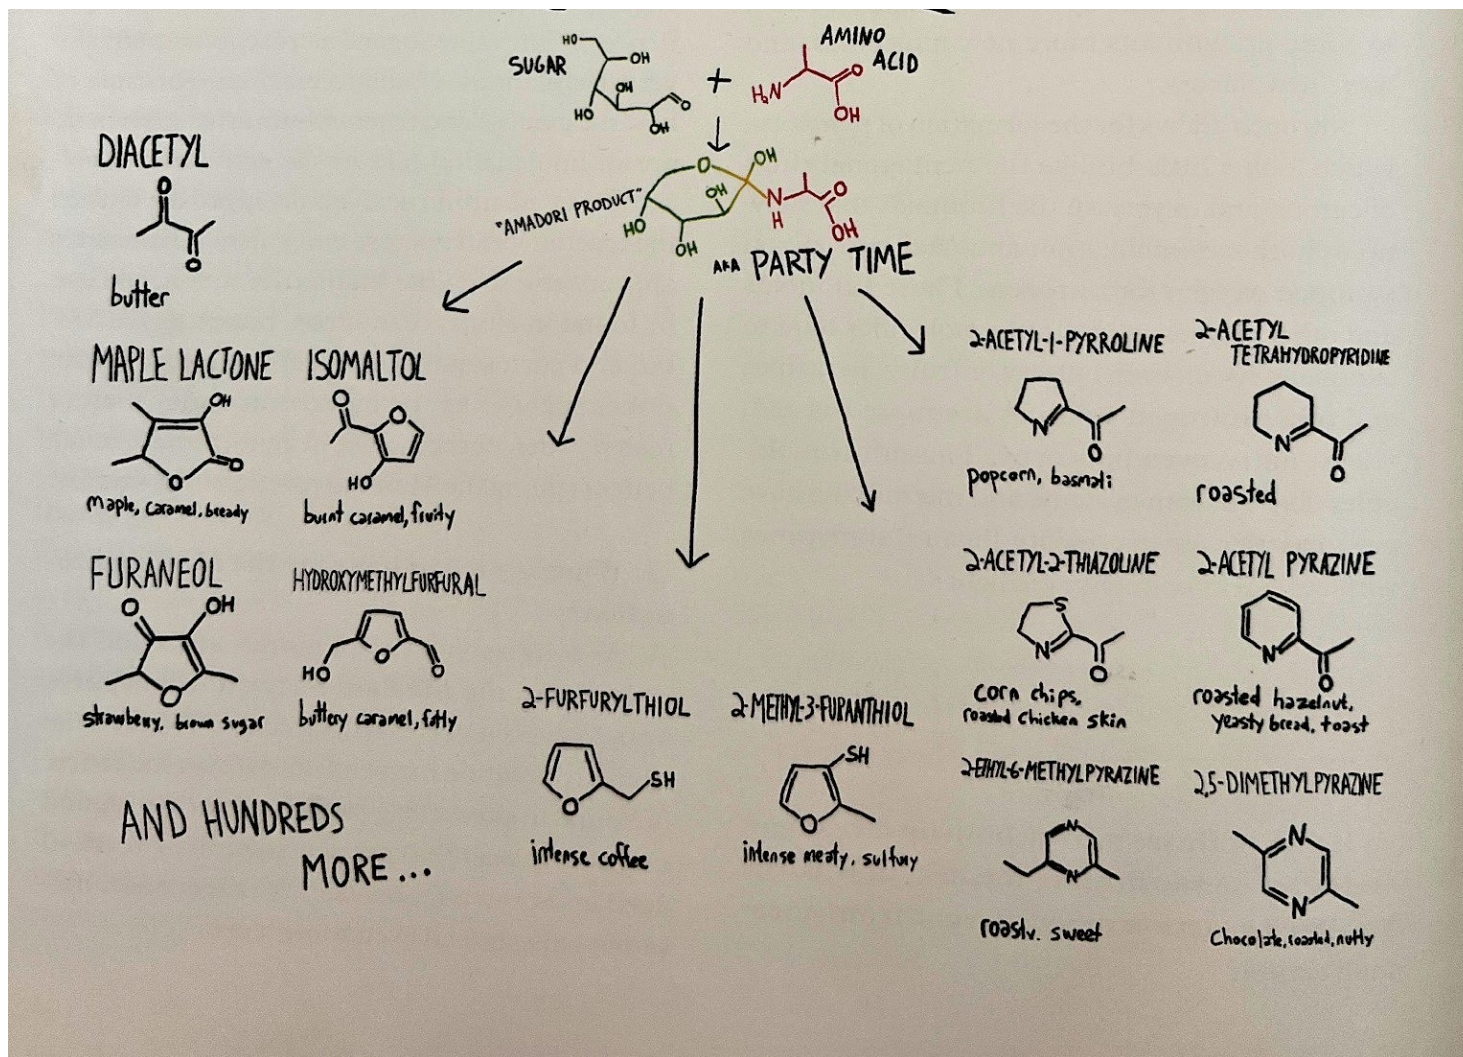 SUGAR
HO
OH
OH
HO
OH
O
+
AMINO
ACID
H₂N
O
OH
"AMADORI PRODUCT"
O
OH
OH
HO
OH
N
H
O
OH
AKA PARTY TIME
DIACETYL
O
O
butter
MAPLE LACTONE
OH
O
O
maple, caramel, bready
ISOMALTOL
O
O
HO
burnt caramel, fruity
FURANEOL
O
OH
O
strawberry, brown sugar
HYDROXYMETHYLFURFURAL
HO
O
O
buttery caramel, fatty
AND HUNDREDS
MORE...
2-FURFURYLTHIOL
SH
O
intense coffee
2-METHYL-3-FUPANTHIOL
SH
O
intense meaty, sulfury
2-ACETYL-1-PYRROLINE
N
O
popcorn, basmati
2-ACETYL
TETRAHYDROPYRIDINE
N
O
roasted
2-ACETYL-2-THIAZOLINE
S
N
O
corn chips,
roasted chicken skin
2-ACETYL PYRAZINE
N
O
roasted hazelnut,
yeasty bread, toast
2-ETHYL-6-METHYLPYRAZINE
N
N
roasty. sweet
2,5-DIMETHYLPYRAZINE
N
N
Chocolate, roasted, nutty